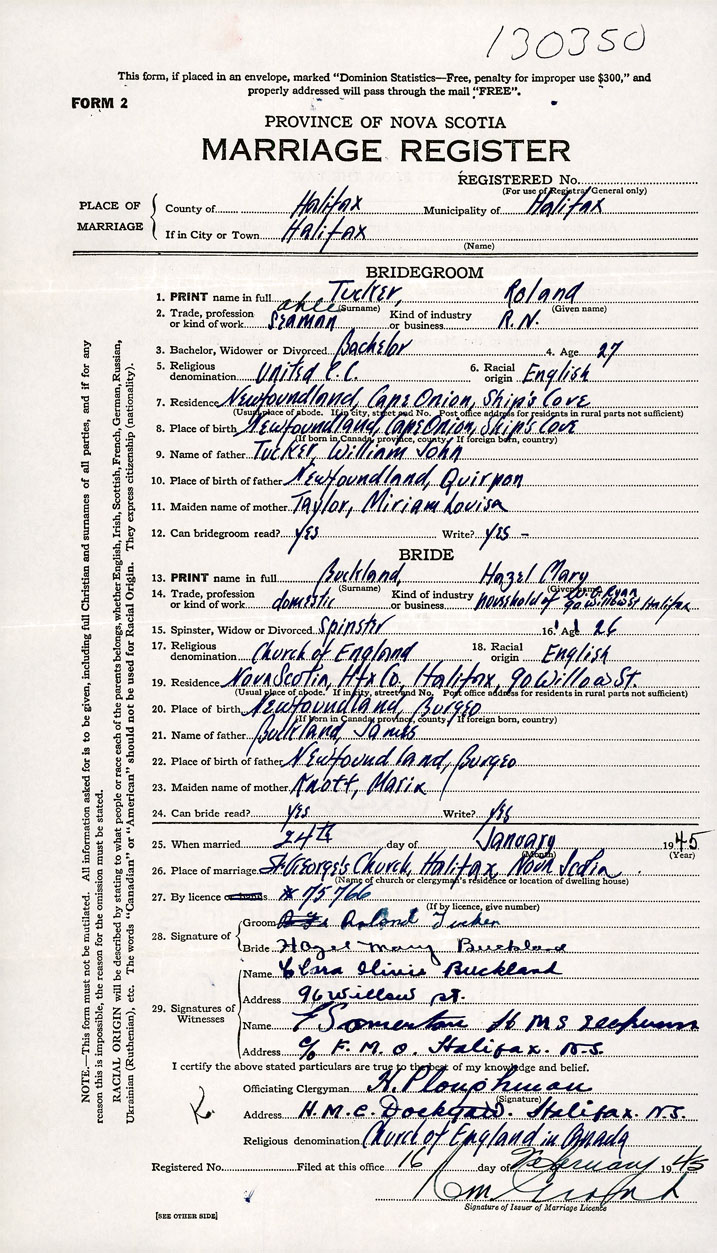 130350
This form, if placed in an envelope, marked "Dominion Statistics—Free, penalty for improper use $300," and
properly addressed will pass through the mail "FREE".
FORM 2
PROVINCE OF NOVA SCOTIA
MARRIAGE REGISTER
REGISTERED No.
(For use of Registrar General only)
PLACE OF MARRIAGE
County of Halifax Municipality of Halifax
If in City or Town Halifax
(Name)
BRIDEGROOM
1. PRINT name in full Tucker, Roland
(Surname) (Given name)
2. Trade, profession or kind of work able seaman Kind of industry or business R.N.
3. Bachelor, Widower or Divorced Bachelor 4. Age 27
5. Religious denomination United C.C. 6. Racial origin English
7. Residence Newfoundland, Cape Onion, Ship's Cove
(Usual place of abode. If in city, street and No. Post office address for residents in rural parts not sufficient)
8. Place of birth Newfoundland, Cape Onion, Ship's Cove
(If born in Canada, province, county If foreign born, country)
9. Name of father Tucker, William John
10. Place of birth of father Newfoundland, Quirpon
11. Maiden name of mother Taylor, Miriam Louisa
12. Can bridegroom read? yes Write? yes –
BRIDE
13. PRINT name in full Buckland, Hazel Mary
(Surname) (Given name)
14. Trade, profession or kind of work domestic Kind of industry or business household of Ryan 90 Willow St Halifax
15. Spinster, Widow or Divorced Spinster 16. Age 26
17. Religious denomination Church of England 18. Racial origin English
19. Residence Nova Scotia, Hfx Co, Halifax, 90 Willow St.
(Usual place of abode. If in city, street and No. Post office address for residents in rural parts not sufficient)
20. Place of birth Newfoundland, Burgeo
(If born in Canada, province, county If foreign born, country)
21. Name of father Buckland, James
22. Place of birth of father Newfoundland, Burgeo
23. Maiden name of mother Knott, Maria
24. Can bride read? yes Write? yes
25. When married 24th day of January 1945
(Month) (Year)
26. Place of marriage St. George's Church, Halifax Nova Scotia
(Name of church or clergyman's residence or location of dwelling house)
27. By licence # 75766
(If by licence, give number)
28. Signature of
Groom Roland Tucker
Bride Hazel Mary Buckland
29. Signatures of Witnesses
Name Olivia Buckland
Address 96 Willow st.
Name Somerton H M S
Address c/o F. M. O. Halifax. N.S.
I certify the above stated particulars are true to the best of my knowledge and belief.
Officiating Clergyman H. Ploughman
(Signature)
Address H.M.C. Dockyard. Halifax. N.S.
Religious denomination Church of England in Canada
Registered No. Filed at this office 16 day of February 1945
Signature of Issuer of Marriage Licence
[SEE OTHER SIDE]
NOTE.—This form must not be mutilated. All information asked for is to be given, including full Christian and surnames of all parties, and if for any
reason this is impossible, the reason for the omission must be stated.
RACIAL ORIGIN will be described by stating to what people or race each of the parents belongs, whether English, Irish, Scottish, French, German, Russian,
Ukrainian (Ruthenian), etc. The words "Canadian" or "American" should not be used for Racial Origin. They express citizenship (nationality).